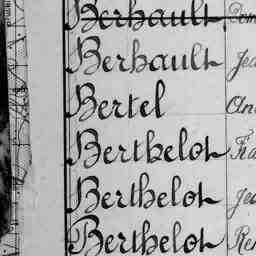 Berhault
Berhault Jea
Bertel An
Berthelot Fra
Berthelot Jea
Berthelot Ren